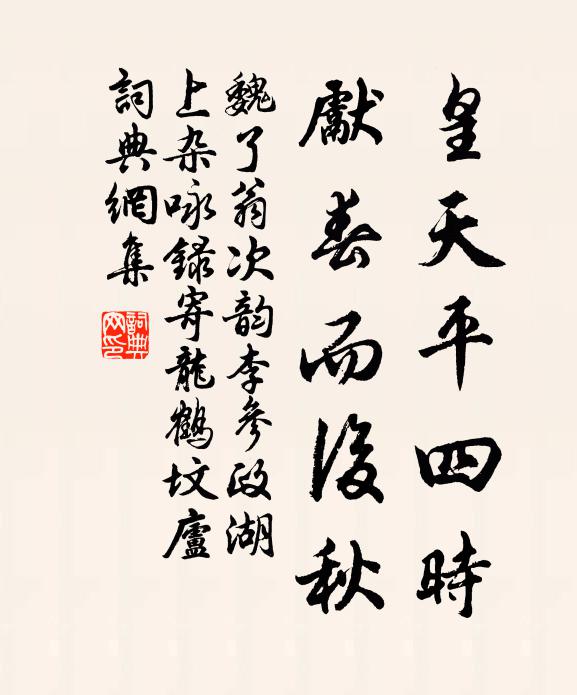 皇天平四時
獻春而後秋
魏了翁次韵李參政湖
上杂咏録寄龍鶴坟廬
詞典網集
詞典
网印